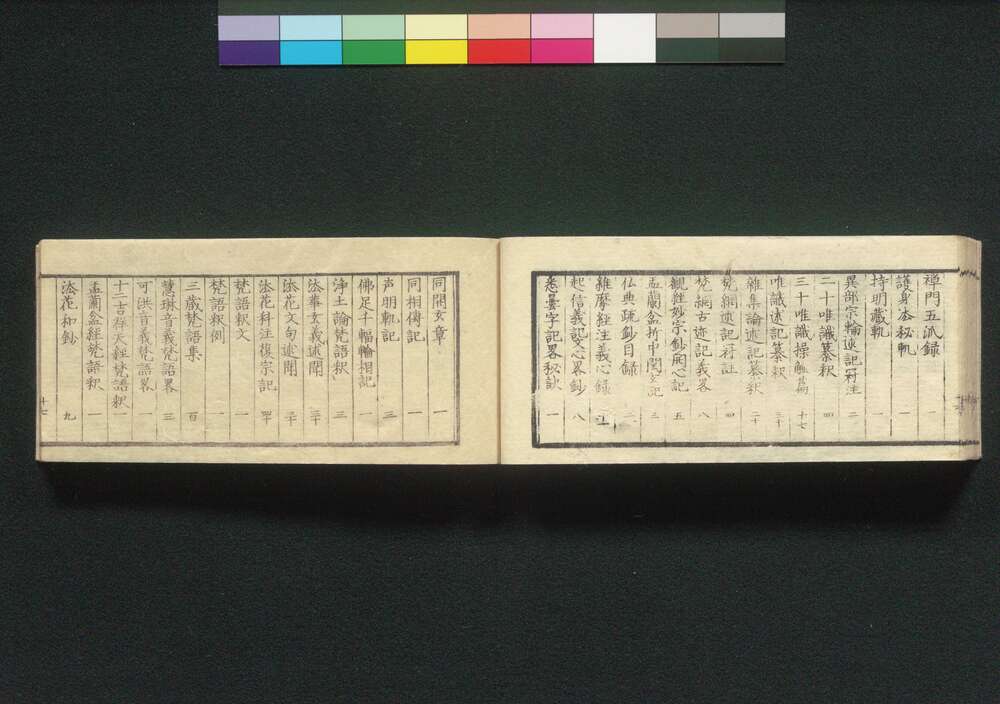 禅門五派録 一
護身法秘軌 一
持明蔵軌 一
異部宗輪述記冠注 二
二十唯識纂釈 四
三十唯識操觚篇 十七
唯識述記纂釈 三十
雑集論述記纂釈 二十
梵網述記冠註 四
梵網古迹記義畧 八
観経妙宗鈔関心記 五
盂蘭盆折中関玄記 三
仏典疏鈔目録 二
維摩経注義心録
起信義記要心畧鈔 八
悉曇字記畧秘訣 一
同開玄章 一
同相傳記 一
声明軌記 三
佛足千輻輪相記 一
浄土論梵語釈 三
法華玄義述聞 三十
法花文句述聞 三十
法花科注復宗記 四十
梵語釈文 一
梵語釈例 一
三蔵梵語集 百
慧琳音義梵語畧 三
可洪音義梵語畧 一
十二吉祥天経梵語釈 一
盂蘭盆経梵語釈 一
法花和鈔 九
十七